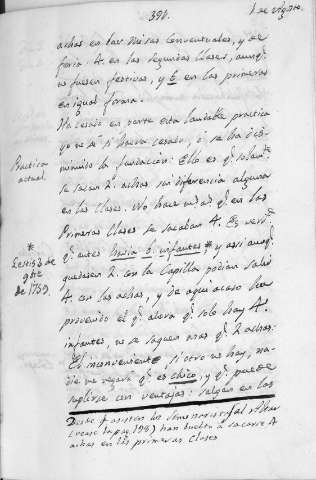 390.
1 de Agosto.
achas en las Misas Conventuales, y se
saca. 4. en las segundas Clases, aunq.
no fuesen festivas, y 6 en las primeras
en igual forma.
Ha cesado en parte esta laudable practica
yo no sé si haura cesado, ó se ha dis-
minuido la fundacion: Ello es q. solam.te
se sacan 2. achas, sin diferencia alguna
en las Clases. No hace m.s a.s q. en las
Primeras Clases se sacaban 4. Es verd.
q. antes havia 6. infantes,* y assi aunq.
quedasen 2. con la Capilla podian salir
4. con las achas, y de aqui acaso ha
provenido el q. ahora q. solo hay 4.
infantes, no se saquen mas q. 2 achas.
El inconveniente, si otro no hay, na-
die me negará q. es chico, y q. puede
suplirse con ventajas: salgan en las
Practica
actual.
*
de 9bre
de 1759.
Desde q. asisten los
(vease la pag. 198) han buelto a sacarse 4
achas en las primeras clases